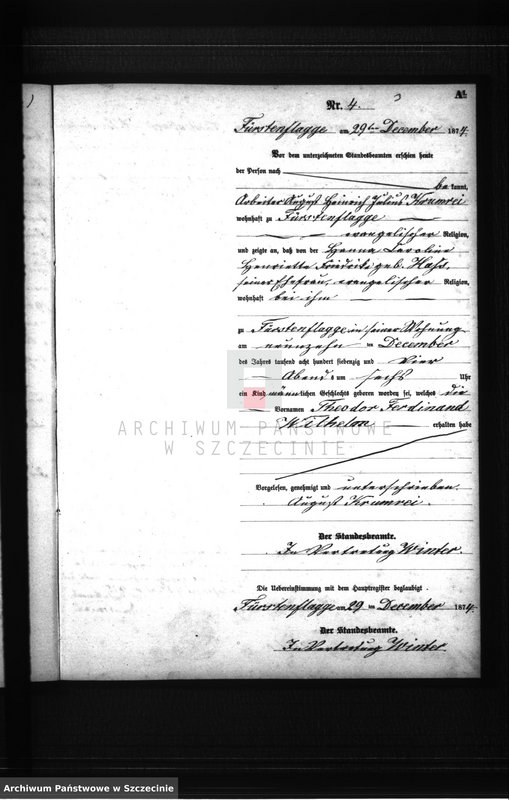 A1.
Nr. 4. 3
Fürstenflagge am 29ten December 1874.
Vor dem unterzeichneten Standesbeamten erschien heute
der Person nach
bekannt,
Arbeiter August Heinrich Julius Krumrei
wohnhaft zu Fürstenflagge
evangelischer Religion,
und zeigte an, daß von der Hanna Caroline
Henriette Fridrike geb. Hass,
seiner Ehefrau, evangelischer Religion,
wohnhaft bei ihm
zu Fürstenflagge in seiner Wohnung
am neunzehn ten December
des Jahres tausend acht hundert siebenzig und vier
Abend s um sechs Uhr
ein Kind männlichen Geschlechts geboren worden sei, welches die
Vornamen Theodor Ferdinand
Wilhelm erhalten habe
ARCHIWUM PAŃSTWOWE
W SZCZECINIE
Vorgelesen, genehmigt und unterschrieben.
August Krumrei.
Der Standesbeamte.
In Vertretung Winter.
Die Uebereinstimmung mit dem Hauptregister beglaubigt
Fürstenflagge am 29 ten December 1874.
Der Standesbeamte.
In Vertretung Winter.
Archiwum Państwowe w Szczecinie